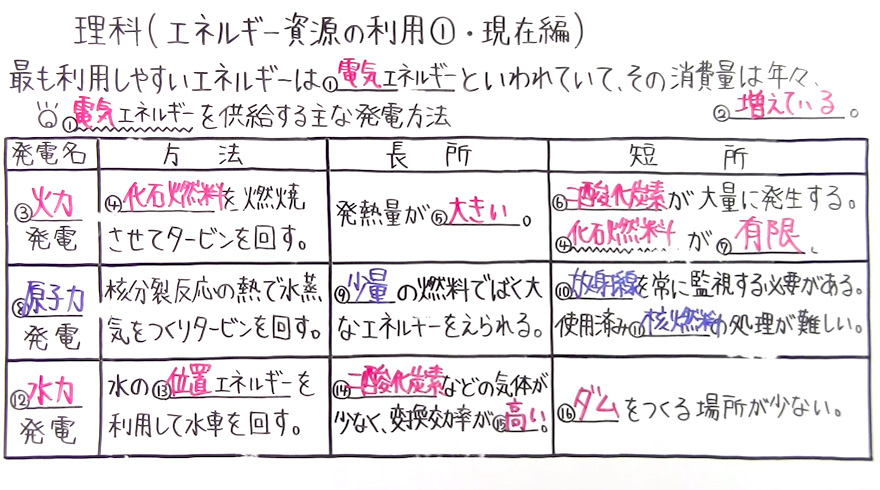 理科(エネルギー資源の利用①・現在編)
最も利用しやすいエネルギーは①電気エネルギーといわれていて、その消費量は年々、
②増えている。
①電気エネルギーを供給する主な発電方法
発電名 方法 長所 短所
③火力発電
④化石燃料を燃焼
させてタービンを回す。
発熱量が⑤大きい。
⑥二酸化炭素が大量に発生する。
④化石燃料が⑦有限、
⑧原子力発電
核分裂反応の熱で水蒸
気をつくりタービンを回す。
⑨少量の燃料でばく大
なエネルギーをえられる。
⑩放射線を常に監視する必要がある。
使用済み⑪核燃料の処理が難しい。
⑫水力発電
水の⑬位置エネルギーを
利用して水車を回す。
⑭二酸化炭素などの気体が
少なく、変換効率が⑮高い。
⑯ダムをつくる場所が少ない。